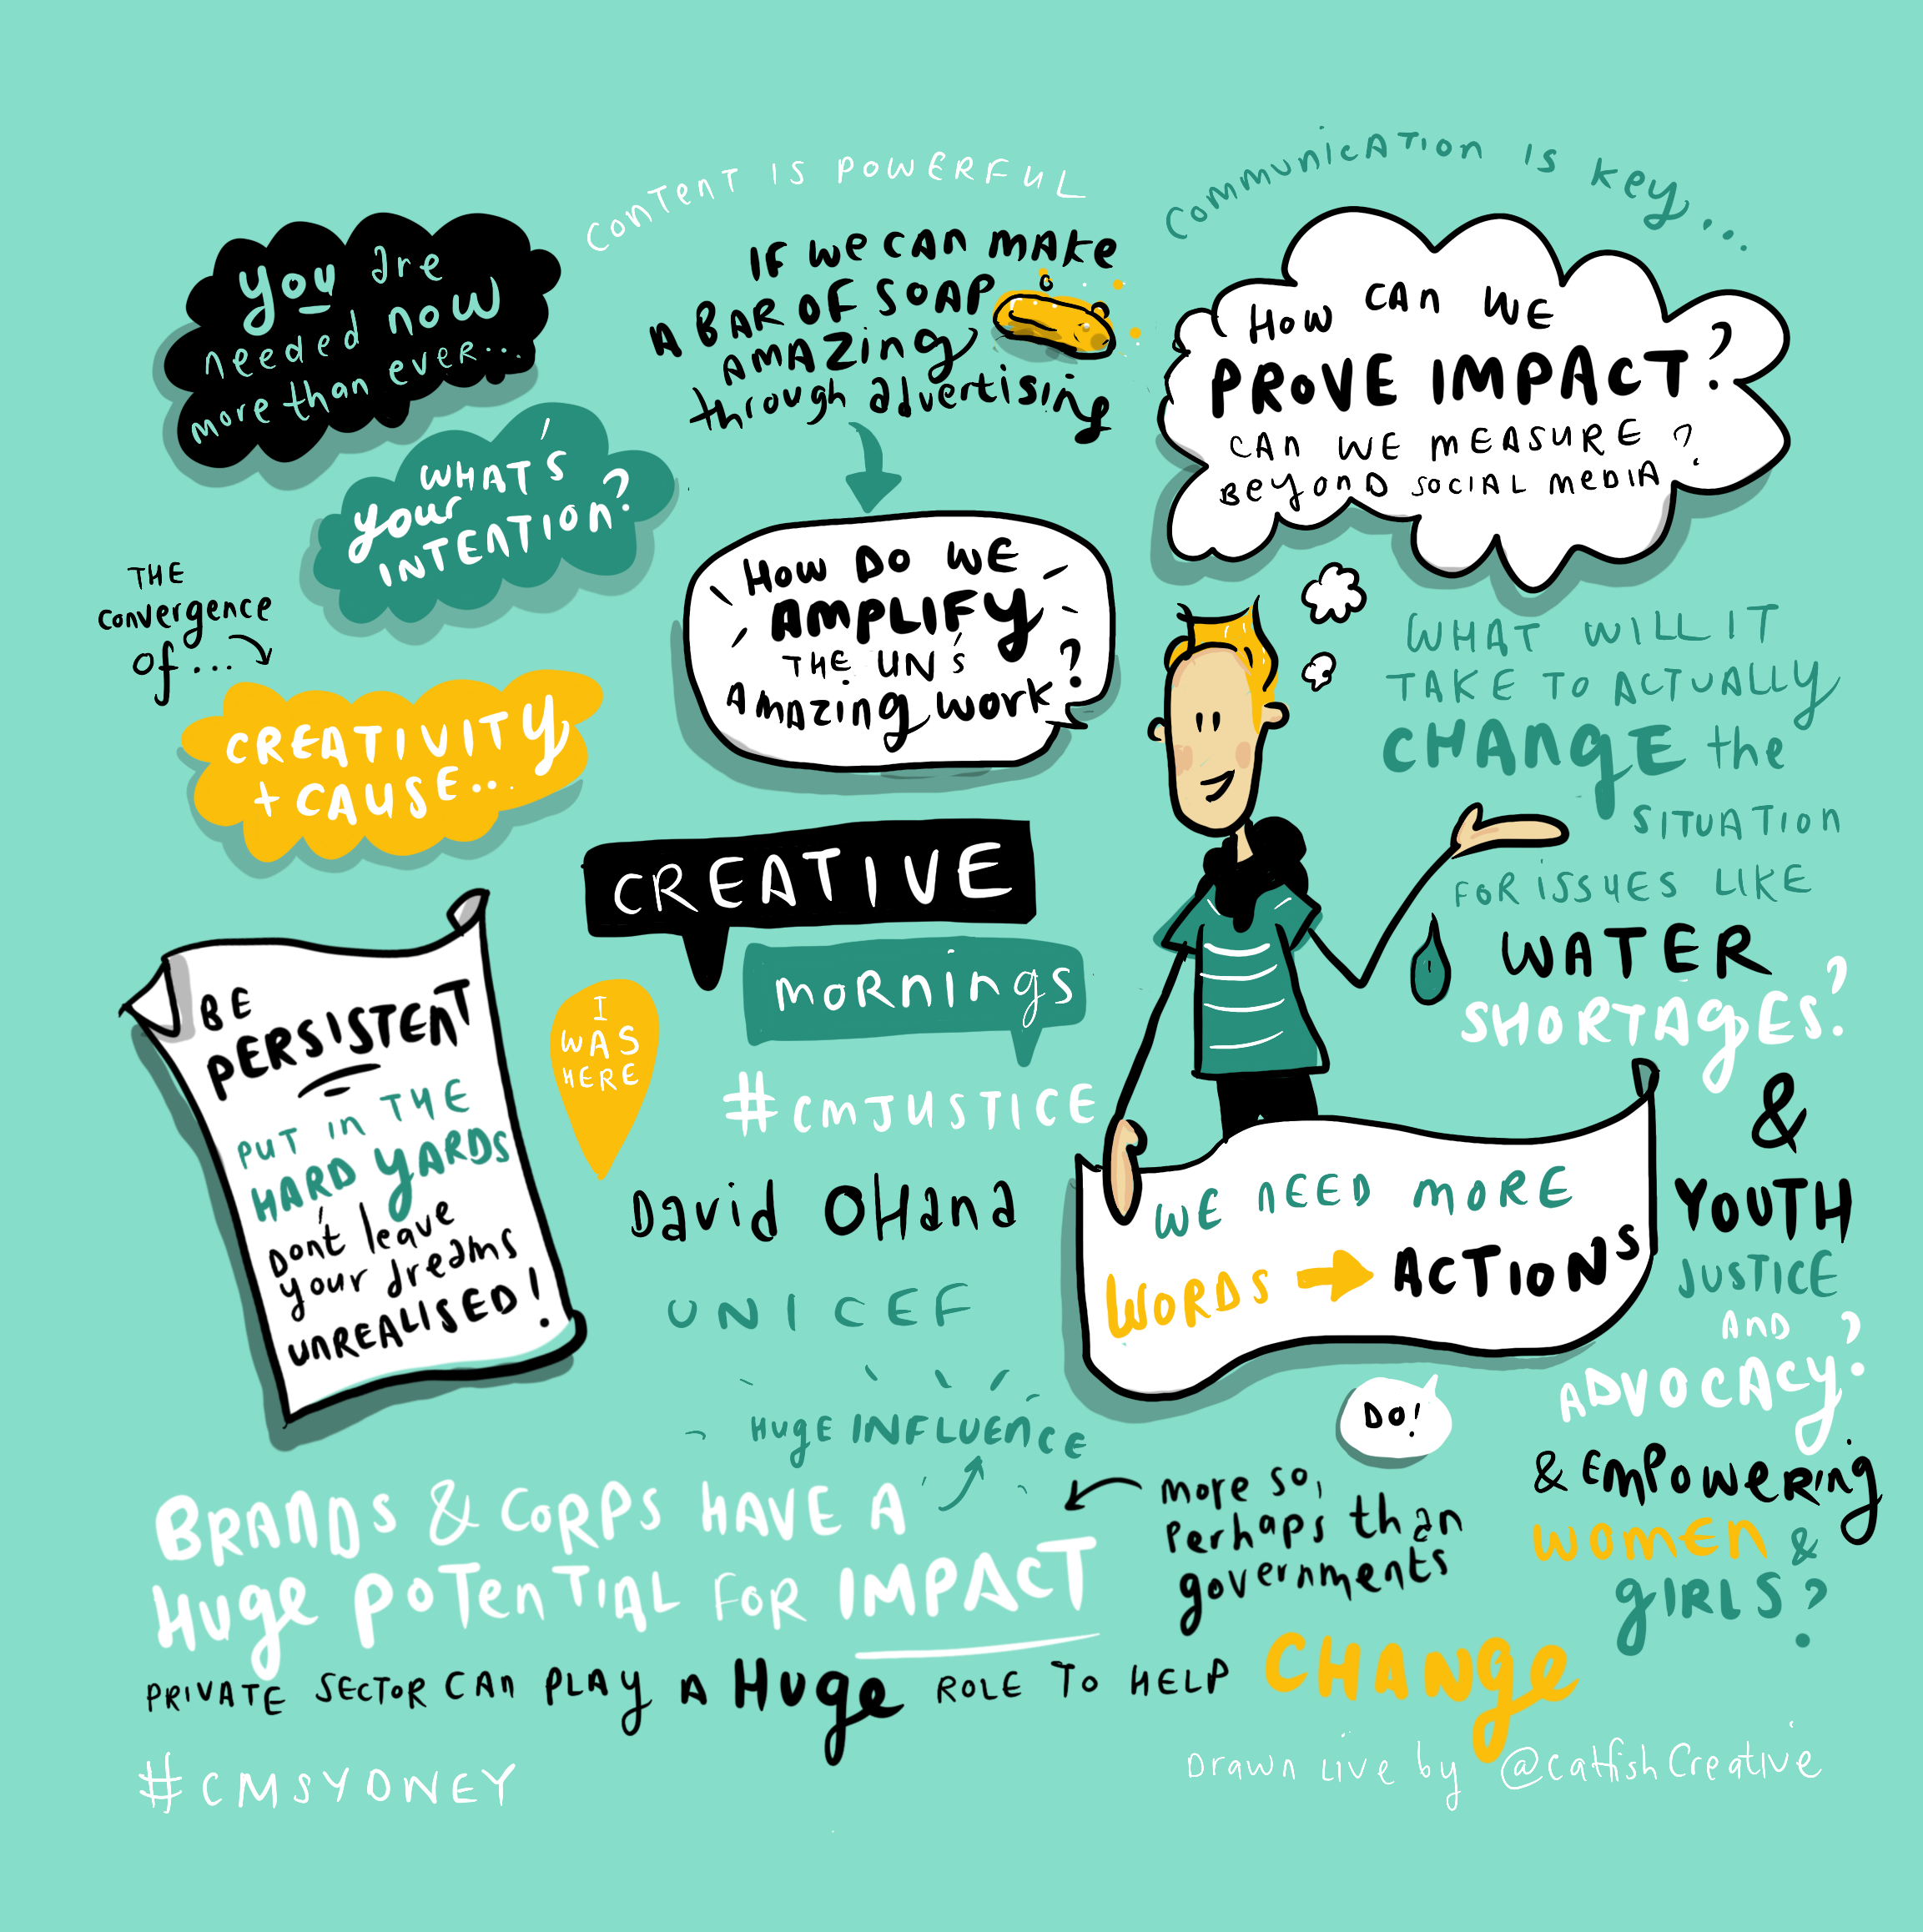 Content is powerful
Communication is key...
You are
needed now
more than ever...
What's
your
intention?
The
convergence
of...
Creativity
+ cause...
If we can make
a bar of soap
amazing
through advertising
How do we
amplify
the UN's
amazing work?
How can we
prove impact?
Can we measure?
Beyond social media
What will it
take to actually
change the
situation
for issues like
water
shortages?
&
youth
justice
and
advocacy?
& empowering
women &
girls?
Be
persistent
Put in the
hard yards
Don't leave
your dreams
unrealised!
I
was
here
Creative
Mornings
#CMJUSTICE
David Ohana
UNICEF
We need more
words → actions
Do!
Huge influence
Brands & corps have a
huge potential for impact
more so,
perhaps than
governments
Private sector can play a huge role to help change
#CMSYDNEY
Drawn live by @catfishCreative